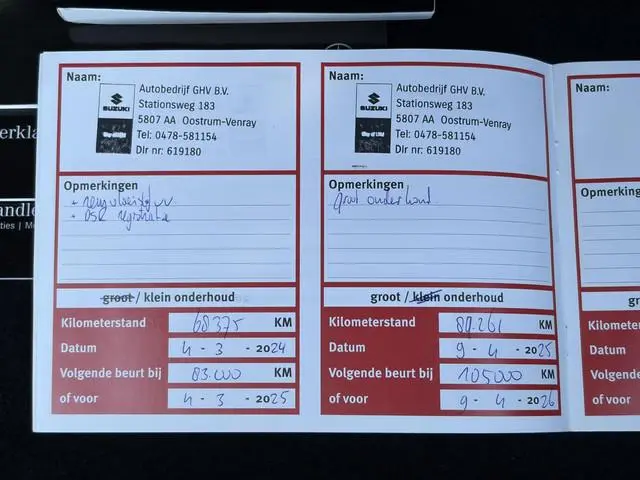 erkla
andle
ties | M
Naam:
SUZUKI
Way of Life!
Autobedrijf GHV B.V.
Stationsweg 183
5807 AA Oostrum-Venray
Tel: 0478-581154
Dlr nr: 619180
Opmerkingen
+ remvloeistof vv
+ DSR registratie
groot / klein onderhoud
Kilometerstand 68375 KM
Datum 4 - 3 - 2024
Volgende beurt bij 83.000 KM
of voor 4 - 3 - 2025
Naam:
SUZUKI
Way of Life!
Autobedrijf GHV B.V.
Stationsweg 183
5807 AA Oostrum-Venray
Tel: 0478-581154
Dlr nr: 619180
Opmerkingen
groot onderhoud
groot / klein onderhoud
Kilometerstand KM
Datum 9 - 4 - 2025
Volgende beurt bij 105000 KM
of voor 9 - 4 - 2026
Naam:
Opmerking
gr
Kilometer
Datum
Volgende
of voor